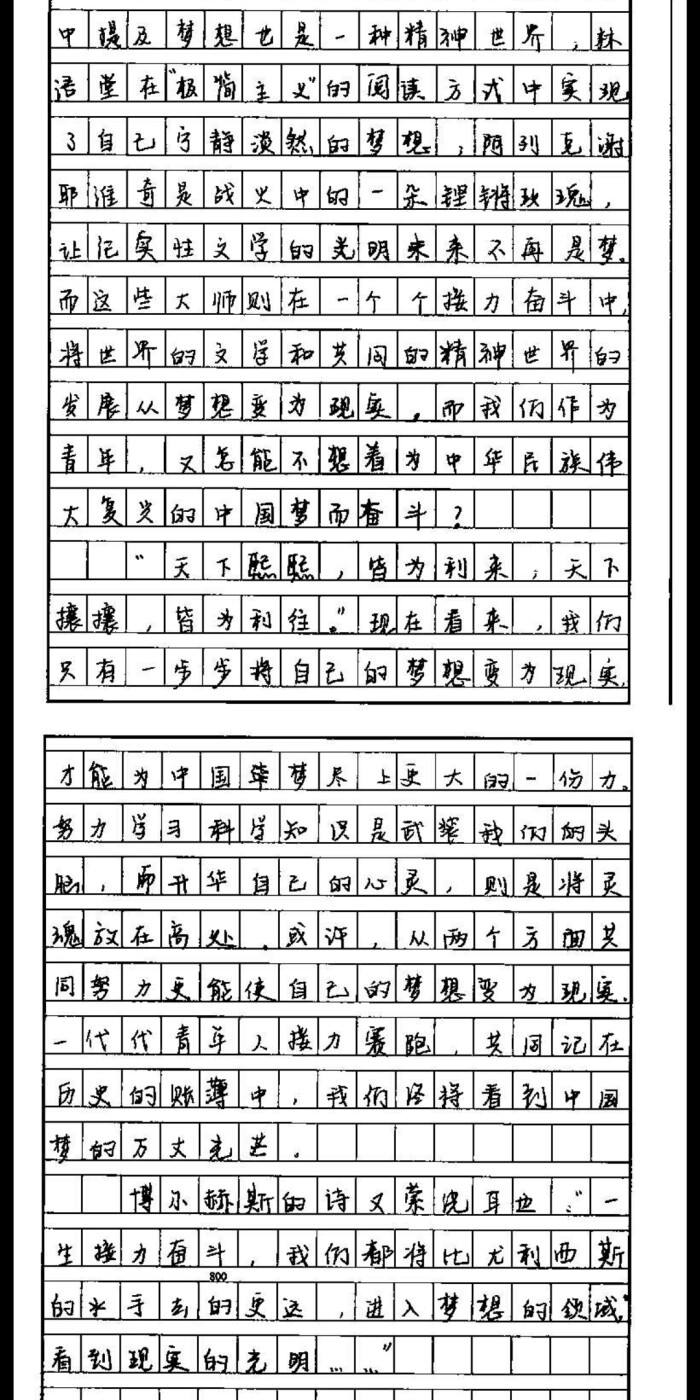 中提及梦想也是一种精神世界，林
语堂在“极简主义”的阅读方式中实现
了自己宁静淡然的梦想，阿列克谢
耶维奇是战火中的一朵铿锵玫瑰，
让纪实性文学的光明未来不再是梦。
而这些大师则在一个个接力奋斗中，
将世界的文学和共同的精神世界的
发展从梦想变为现实。而我们作为
青年，又怎能不想着为中华民族伟
大复兴的中国梦而奋斗？
“天下熙熙，皆为利来；天下
攘攘，皆为利往。”现在看来，我们
只有一步步将自己的梦想变为现实，
才能为中国华梦尽上更大的一份力。
努力学习科学知识是武装我们的头
脑，而升华自己的心灵，则是将灵
魂放在高处。或许，从两个方面共
同努力更能使自己的梦想变为现实。
一代代青年人接力赛跑，共同记在
历史的账薄中，我们终将看到中国
梦的万丈光芒。
博尔赫斯的诗又萦绕耳边：“一
生接力奋斗，我们都将比尤利西斯
800
的水手去的更远，进入梦想的领域，
看到现实的光明……”